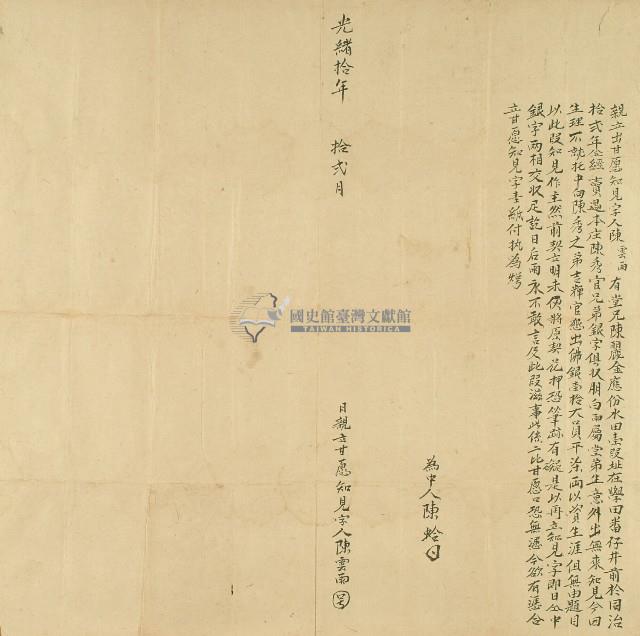 親立出甘愿知見字人陳雲雨有堂兄陳嚴金應份水田壹段址在學田番仔井前於同治
拾弍年公經賣過本庄陳秀官兄弟銀字俱收明白雨屬堂弟生意舛出無來知見今因
生理不就托中向陳秀之弟壬癸官懇出佛銀壹拾大員平柒両以資生涯但無由題目
以此段知見作主然前契立明未便將原契花押恐筆跡有礙是以再立知見字即日仝中
銀字両相交收足訖日后雨永不敢言及此段滋事此係二比甘愿口恐無憑今欲有憑合
立甘愿知見字壹紙付執為炤
為中人陳蛤
光緒拾年拾弍月日親立甘愿知見字人陳雲雨
國史館臺灣文獻館
TAIWAN HISTORICA